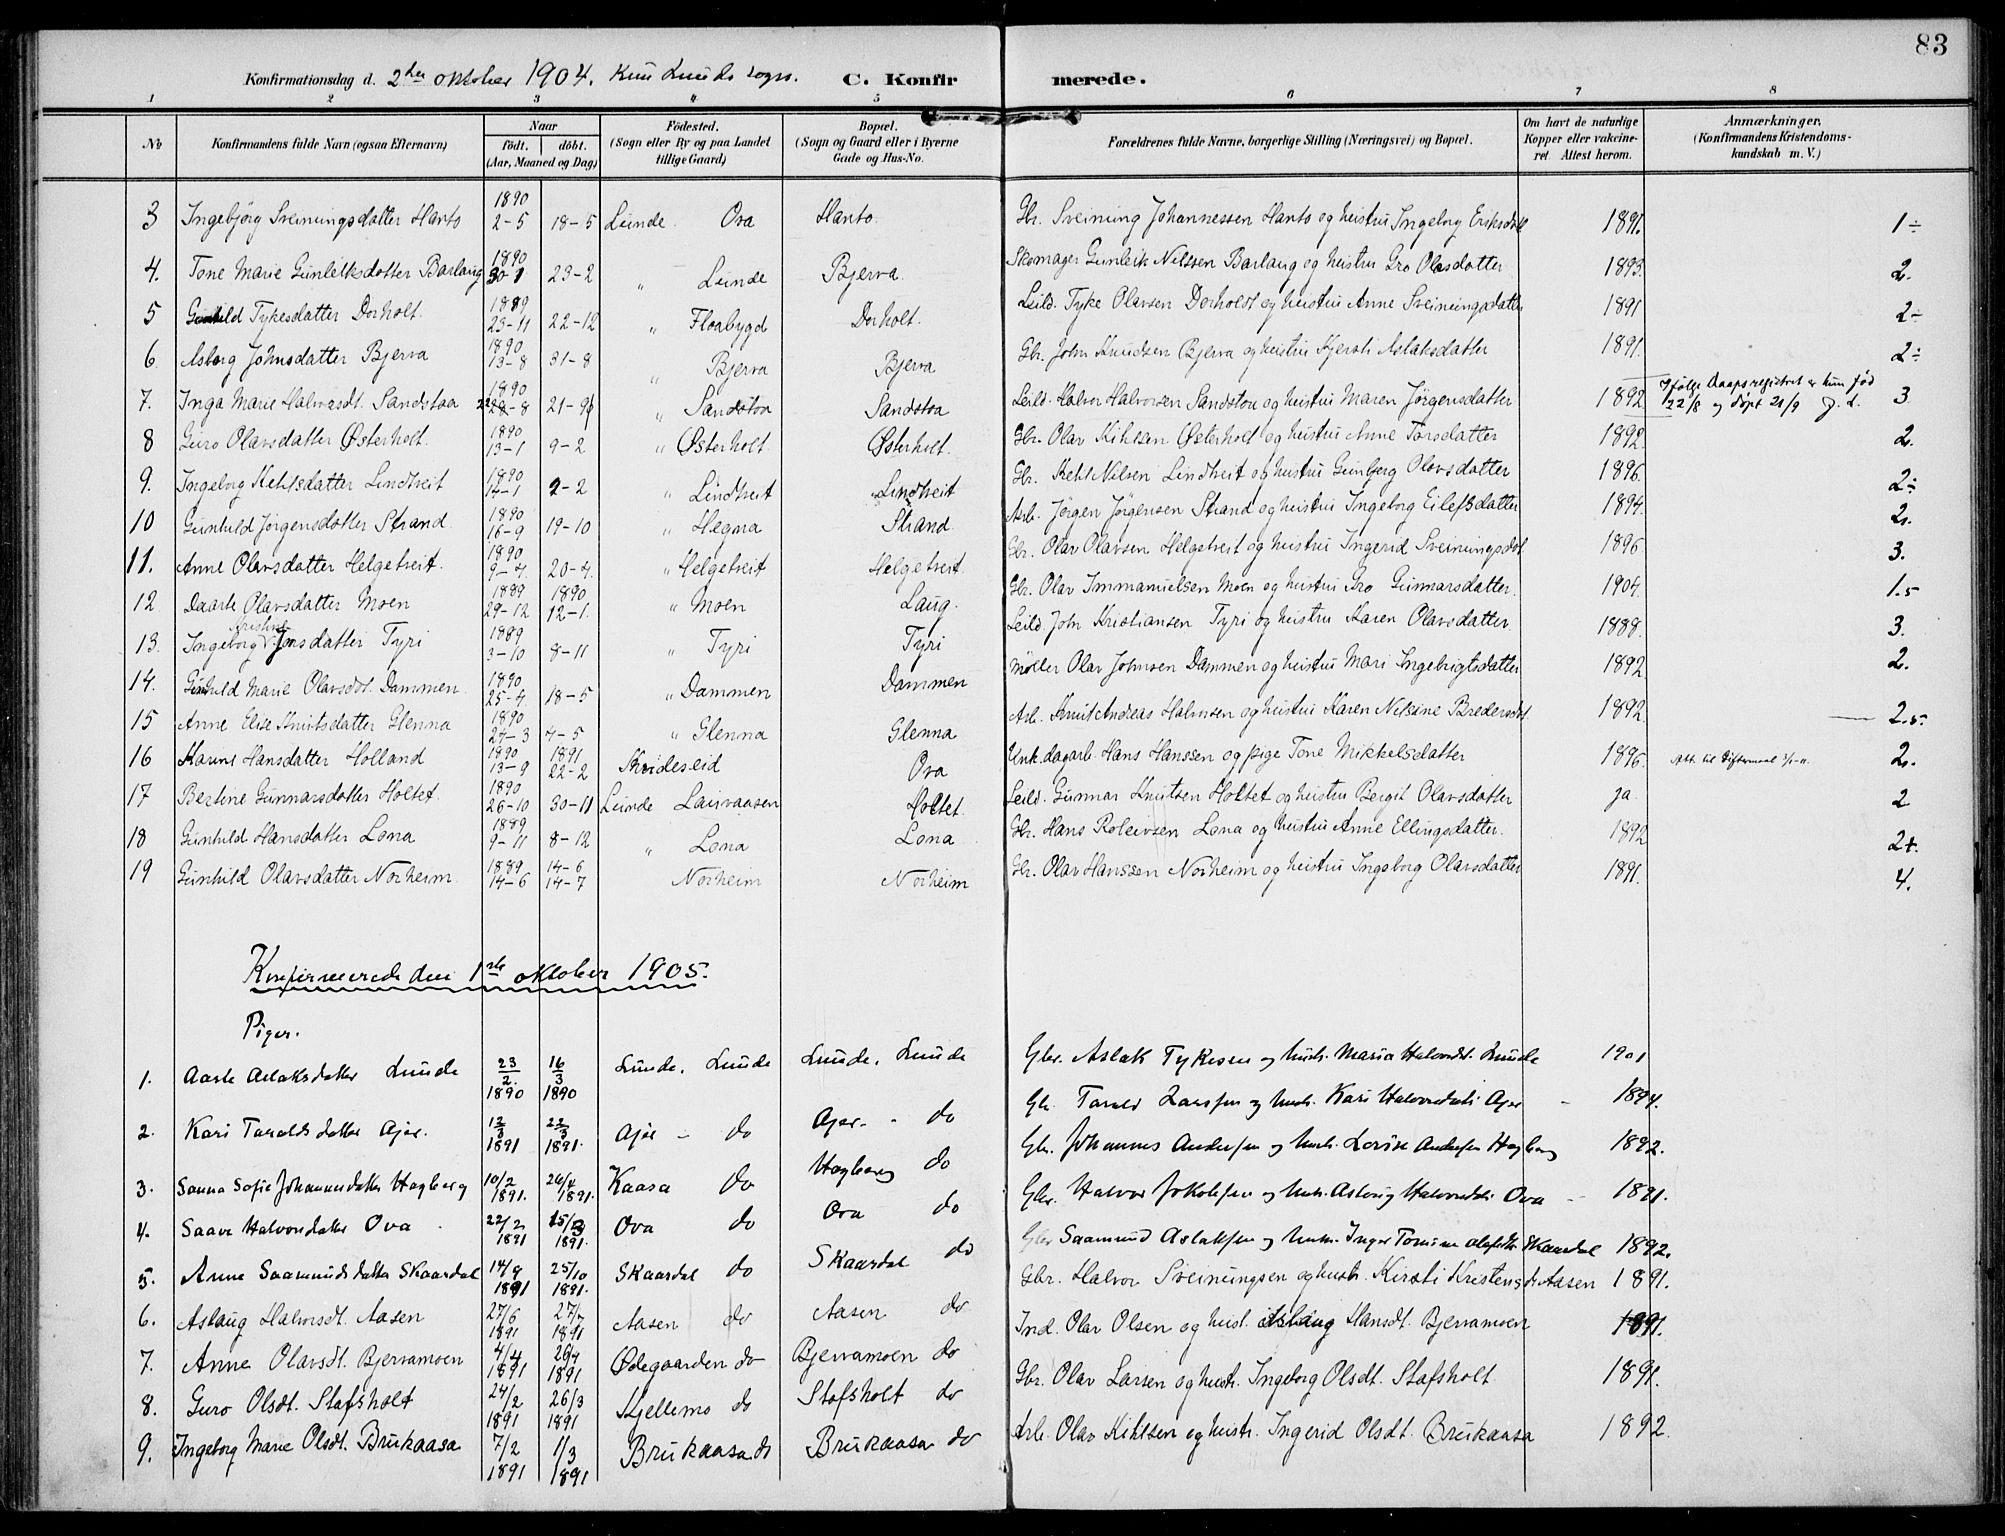 83
Konfirmationsdag d. 2den oktober 1904. Kun Lunde sogn. C. Konfirmerede.
1 2 3 4 5 6 7 8
No Konfirmandens fulde Navn (ogsaa Efternavn) Naar født. døbt. (Aar, Maaned og Dag) Födested. (Sogn eller By og paa Landet tillige Gaard) Bopæl. (Sogn og Gaard eller i Byerne Gade og Hus-No. Forældrenes fulde Navne, borgerlige Stilling (Næringsvei) og Bopæl. Om havt de naturlige Kopper eller vakcineret. Attest herom. Anmærkninger. (Konfirmandens Kristendomskundskab m. V.)
3 Ingebjörg Sveinungsdatter Hanto 1890 2-5 18-5 Lunde Ova Hanto. Gbr. Sveinung Johannessen Hanto og hustru Ingeborg Eriksdat 1891. 1÷
4. Tone Marie Gunleiksdatter Barlaug 1890 30-1 23-2 " Lunde Bjerva. Skomager Gunleik Nilssen Barlaug og hustru Gro Olasdatter 1893. 2.
5 Gunhild Tykesdatter Dorholt. 1889 23-11 22-12 " Flaabygd Dorholt. Leild. Tyke Olavsen Dorholdt og hustru Anne Sveinungsdatter 1891 2÷
6. Asborg Johnsdatter Bjerva 1890 13-8 31-8 " Bjerva Bjerva Gbr. John Knudsen Bjerva og hustru Kjersti Aslaksdatter 1891. 2÷
7. Inga Marie Halvorsdt. Sandstaa 1890 22-8 21-9 " Sandstaa Sandstaa Leild. Halvor Halvorsen Sandstaa og hustru Maren Jörgensdatter 1892 Ifölge Daapsregistret er hun fød 22/8 og döpt 21/9 3
8 Guro Olavsdatter Østerholt. 1890 13-1 9-2 " Østerholt Østerholt. Gbr. Olav Kihlsen Østerholt og hustru Anne Torsdatter 1892. 2.
9. Ingeborg Kehlsdatter Lindtveit 1890 14-1 2-2 " Lindtveit Lindtveit Gbr. Kehl Nilsen Lindtveit og hustru Gunbjorg Olavsdatter 1896. 2÷
10 Gunhild Jörgensdatter Strand 1890 16-9 19-10 " Hegna Strand Arb. Jörgen Jörgensen Strand og hustru Ingeborg Eilefsdatter 1894. 2.
11. Anne Olavsdatter Helgetveit. 1890 9-4. 20-4. " Helgetveit Helgetveit Gbr. Olav Olavsen Helgetveit og hustru Ingerid Sveinungsdat 1896. 3.
12 Daarte Olavsdatter Moen 1889 29-12 1890 12-1. " Moen Laug. Gbr. Olav Immanuelsen Moen og hustru Gro Gunnarsdatter. 1904. 1.5
13. Ingeborg Kristine Jonsdatter Tyri 1889 3-10 8-11 " Tyri Tyri Leild. John Kristiansen Tyri og hustru Karen Olavsdatter 1888. 3.
14. Gunhild Marie Olavsdt. Dammen 1890 25-4. 18-5 " Dammen Dammen Möller Olav Johnsen Dammen og hustru Mari Ingebrigtsdatter 1892 2.
15 Anne Elise Knutsdatter Glenna 1890 24-3 4-5 " Glenna Glenna Arb. Knut Andreas Halvorsen og hustru Karen Nilsine Bredersdt. 1892 2.5.
16 Hanne Hansdatter Holland 1890 13-9 1891 22-2 Skrideseid Ova Unk. dagarb. Hans Hanssen og pige Tone Mikkelsdatter 1896. Att. til Giftermaal 2.
17 Bertine Gunnarsdatter Holtet. 1890 26-10 30-11 Lunde Laurvaasen Holtet Leild. Gunnar Knutsen Holtet og hustru Bergit Olavsdatter ja 2
18 Gunhild Hansdatter Lona 1889 9-11 8-12 " Lona Lona Gbr. Hans Roleivsen Lona og hustru Anne Ellingsdatter. 1892 2+.
19 Gunhild Olavsdatter Norheim 1889 14-6 14-6 14-7 Norheim Norheim Gbr. Olav Hanssen Norheim og hustru Ingeborg Olavsdatter 1891. 4.
Konfirmerede den 1ste oktober 1905.
Piger.
1. Aaste Aslaksdatter Lunde 23/2. 1890 16/3 1890 Lunde, Lunde Lunde, Lunde Gbr. Aslak Tykesen og hustr. Maria Halvorsdt. Lunde 1901
2. Kari Taraldsdatter Ajer. 12/3 1891 22/3 1891. Ajer - do Ajer - do Gbr. Tarald Larsen og hustr. Kari Halvorsdatt. Ajer - 1894.
3. Sanna Sofie Johannesdatter Hagberg 10/2 1891. 26/4 1891. Kaasa do Hagberg do Gbr. Johannes Andersen og hustr. Lovise Andersen Hagberg 1892.
4. Saave Halvorsdatter Ova 22/2 1891 15/3 1891. Ova do Ova do Gbr. Halvor Jokolsen og hustr. Aslaug Halvorsdt. Ova - 1891.
5. Anne Saamundsdatter Skaardal 14/9 1891 25/10 1891. Skaardal do Skaardal do Gbr Saamund Aslaksen og hustr. Inger Tomine Olsdatter Skaardal 1892.
6. Aslaug Halvorsdt. Aasen 27/6 1891 27/7 1891 Aasen do Aasen do Gbr. Halvor Sveinungsen og hustr. Kirsti Kristensdt Aasen 1891.
7. Anne Olavsdt. Bjervamoen 4/4 1891 26/4 1891 Ødegaarden do Bjervamoen do Ind. Olav Olsen og hust. Aslaug Hansdt. Bjervamoen 1891.
8. Guro Olsdt. Stafsholt 24/2 1891 26/3 1891 Kjellemo do Stafsholt do Gbr. Olav Larsen og hustr. Ingeborg Olsdt. Stafsholt 1891.
9. Ingeborg Marie Olsdt. Brukaasa 7/2 1891 1/3 1891 Brukaasa do Brukaasa do Arb. Olav Kihlsen og hustr. Ingerid Olsdt. Brukaasa 1892.